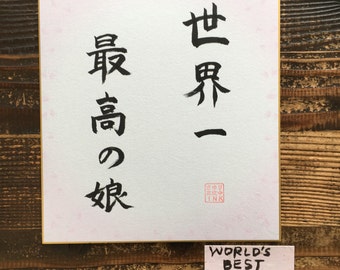 世界一
最高の娘
WORLD'S
BEST